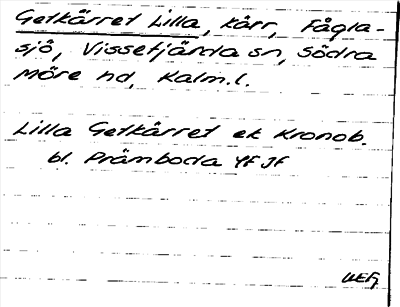 Getkärret Lilla, kärr, Fågla-
sjö, Vissefjärda sn, Södra
Möre hd, Kalm.l.
Lilla Getkärret ek Kronob.
bl. Främboda 4f Jf